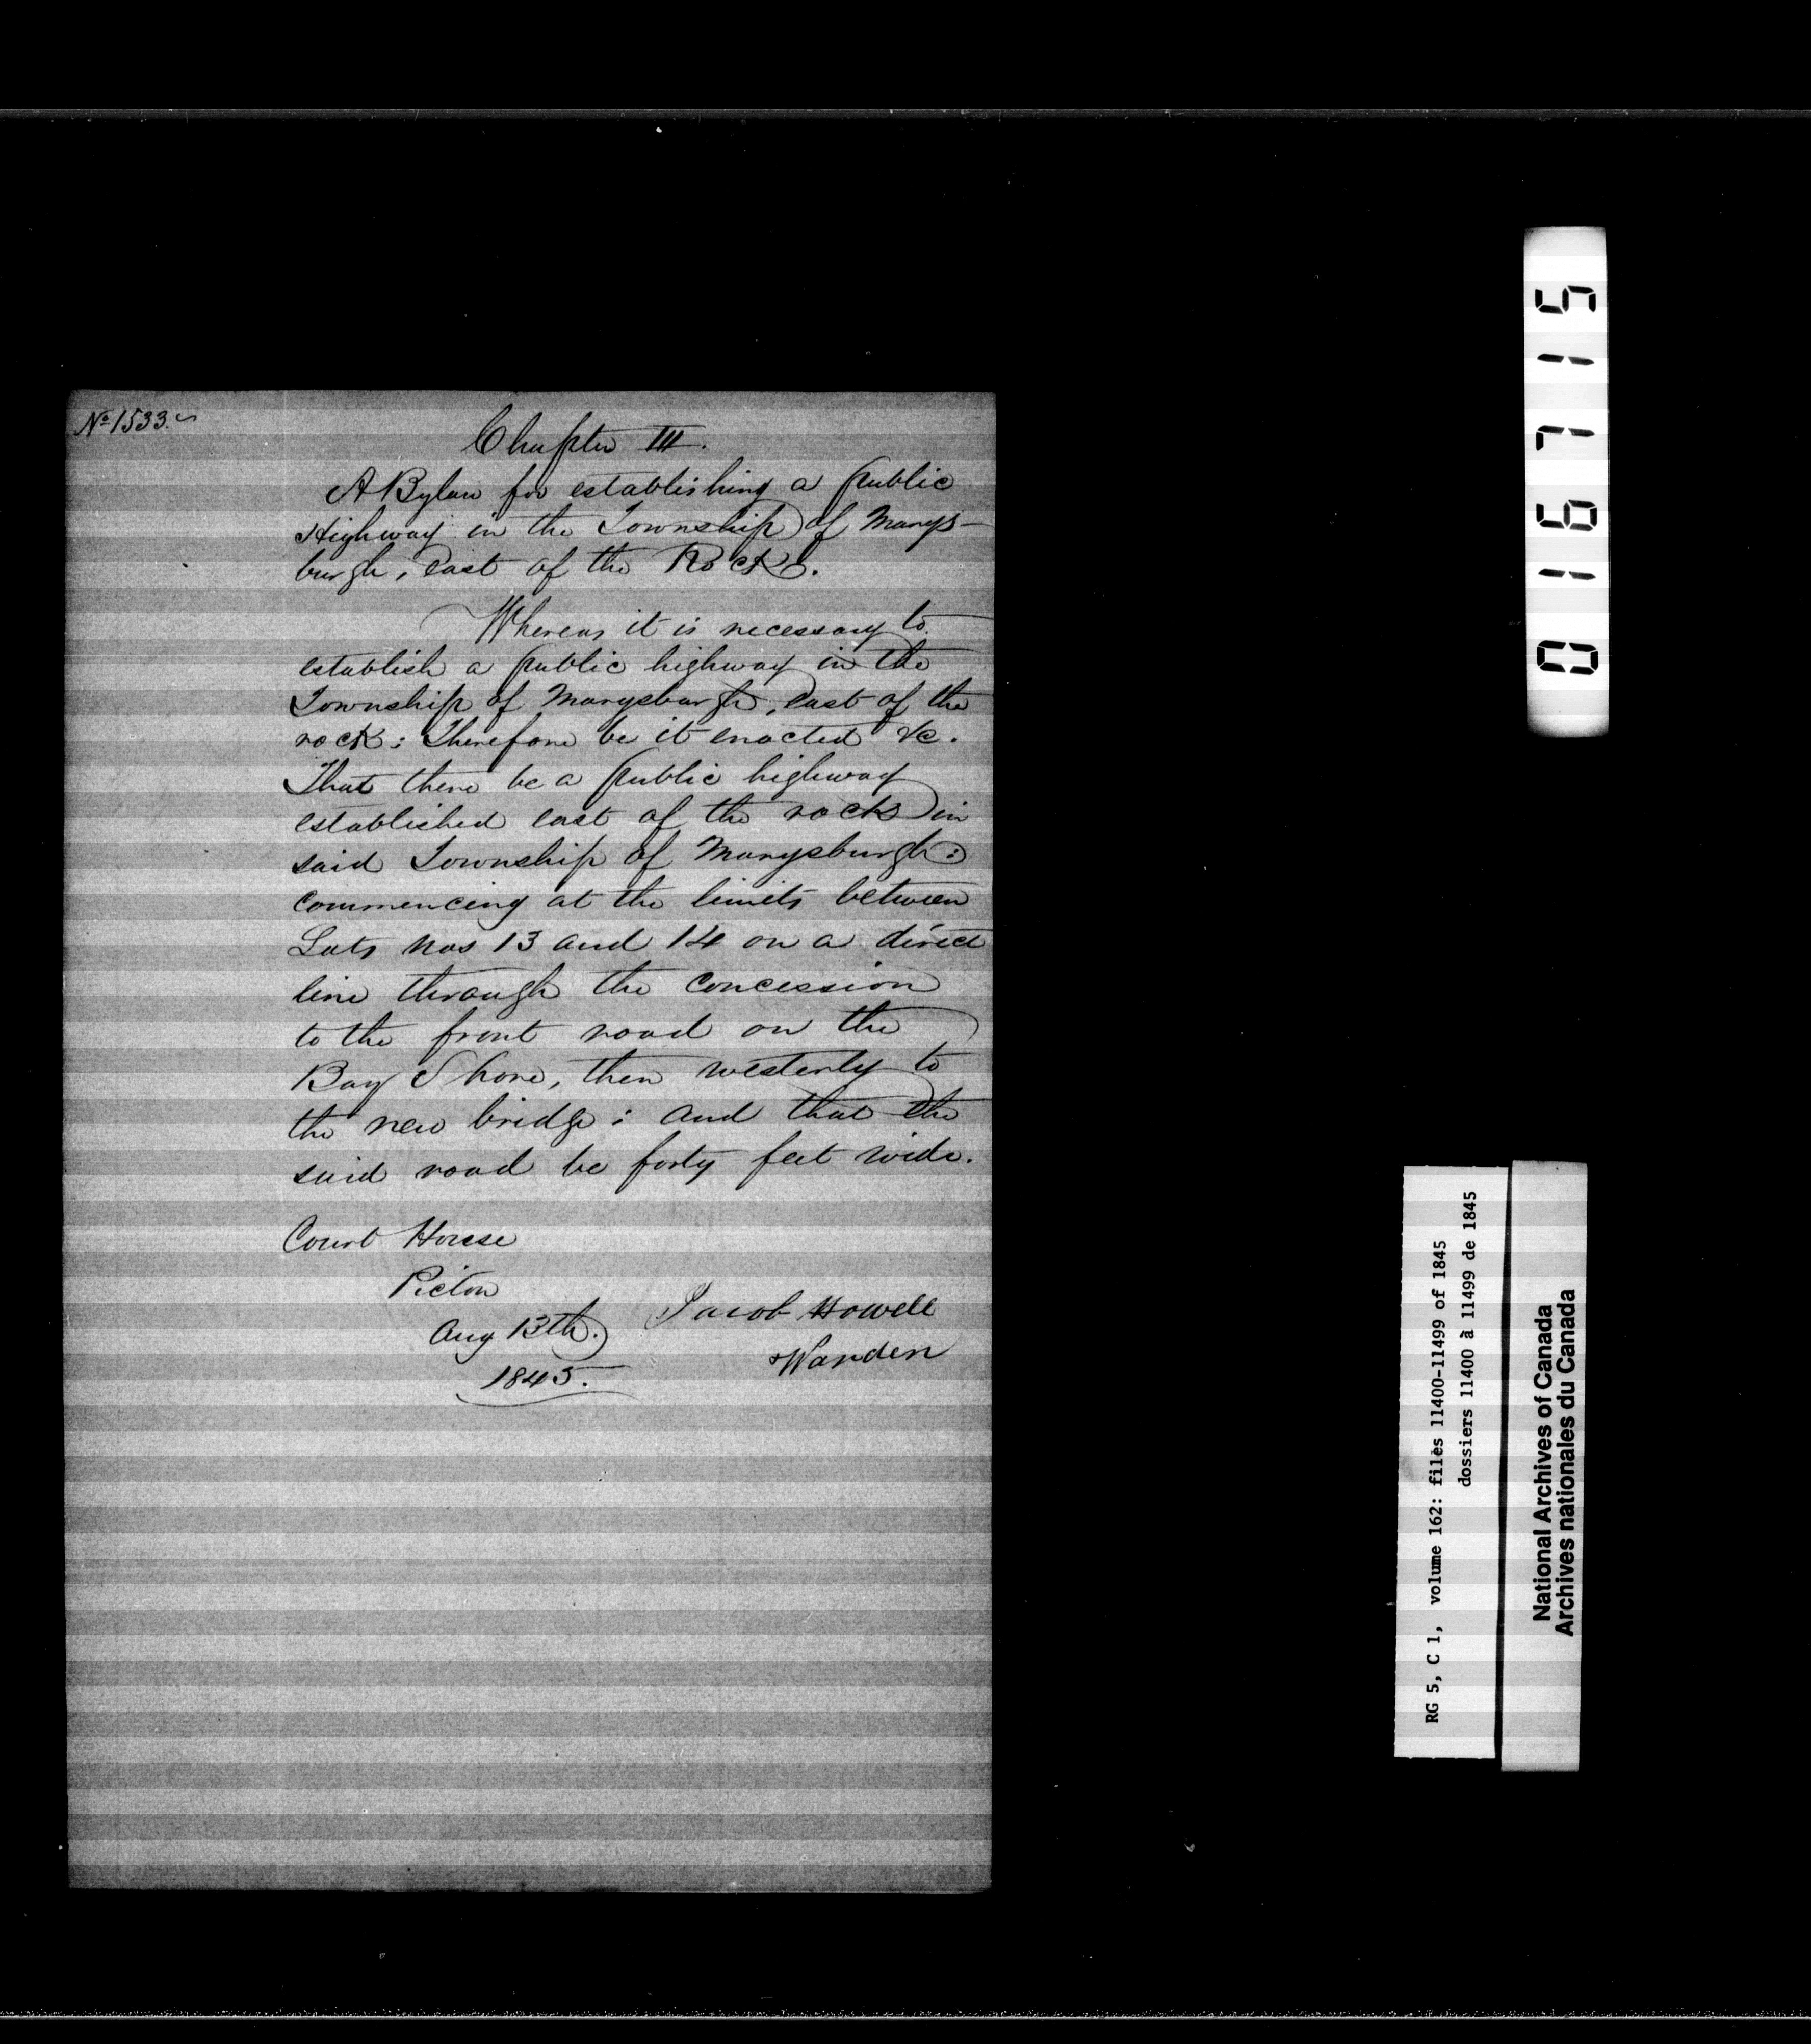 No 1533.
Chapter III.
A Bylaw for establishing a public
Highway in the Township of Marys-
burgh, east of the Rock.
Whereas it is necessary to
establish a public highway in the
Township of Marysburgh, east of the
rock: Therefore be it enacted &c.
That there be a public highway
established east of the rock in
said Township of Marysburgh:
commencing at the limits between
Lots nos 13 and 14 on a direct
line through the concession
to the front road on the
Bay Shore, then westerly to
the new bridge: and that the
said road be forty feet wide.
Court House
Picton
Aug 13th.
1845.
Jacob Howell
Warden
016715
RG 5, C 1, volume 162: files 11400-11499 of 1845
dossiers 11400 à 11499 de 1845
National Archives of Canada
Archives nationales du Canada